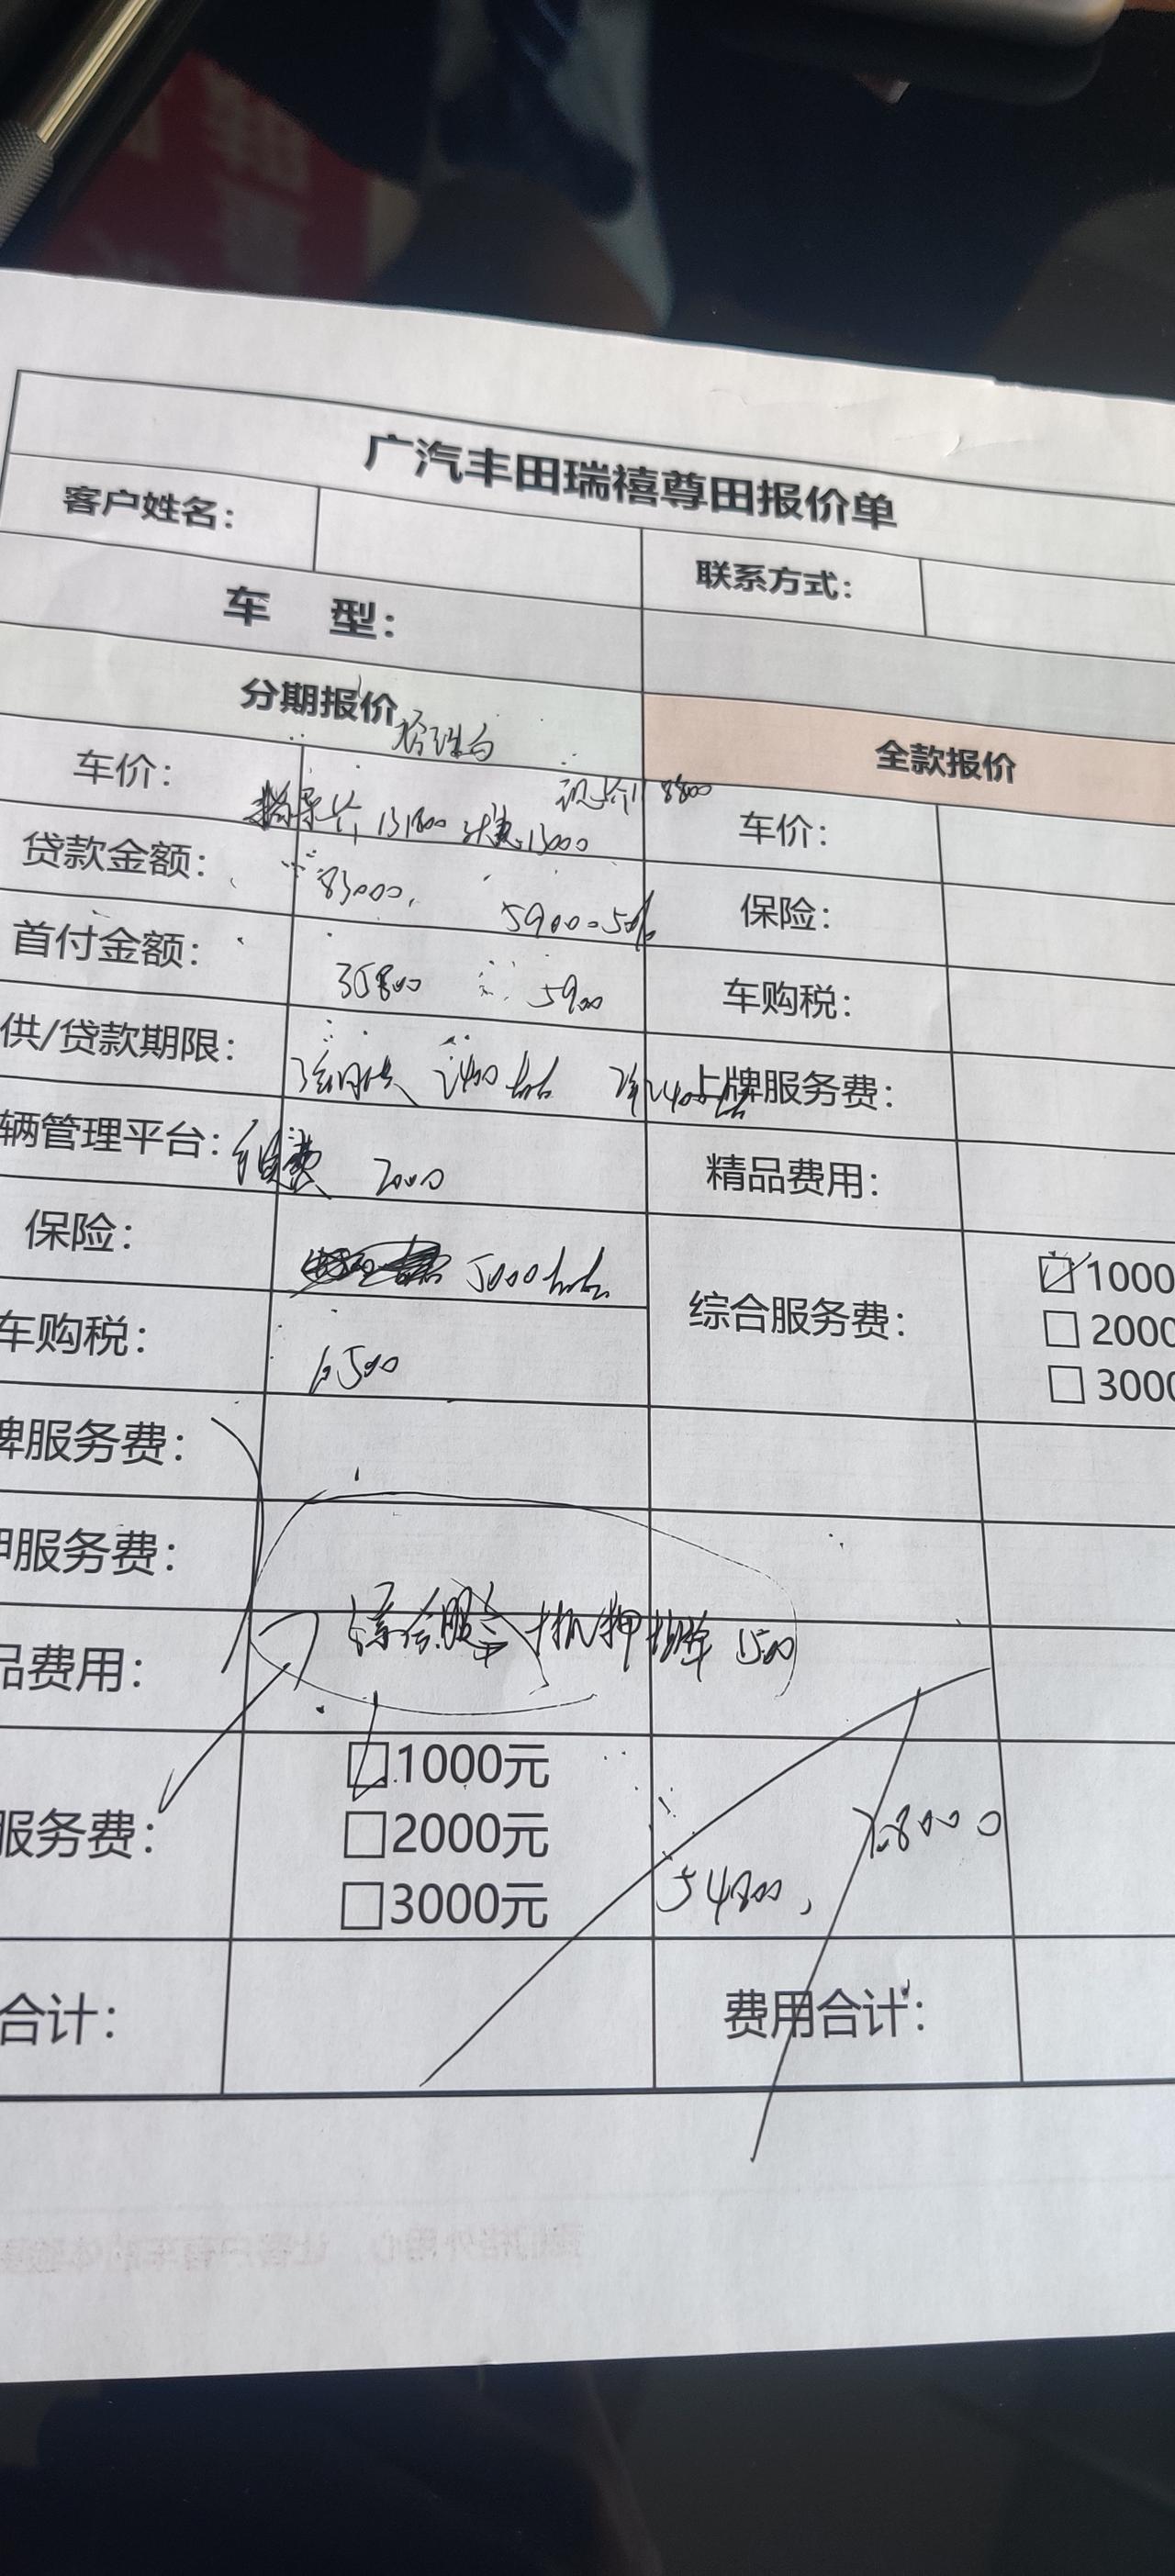 广汽丰田瑞禧尊田报价单
客户姓名：
联系方式：
车 型：
分期报价
全款报价
车价：
指导价 131800 优惠13000
现价118800
车价：
贷款金额：
83000,
59000 50%
保险：
首付金额：
35800
5900
车购税：
供/贷款期限：
3年月供 2400左右
2年2400左右
上牌服务费：
辆管理平台：
2000
精品费用：
保险：
5000左右
综合服务费：
1000
2000
3000
车购税：
10500
牌服务费：
押服务费：
品费用：
综合服务 抵押 1500
服务费：
1000元
2000元
3000元
54800,
78000
合计：
费用合计：